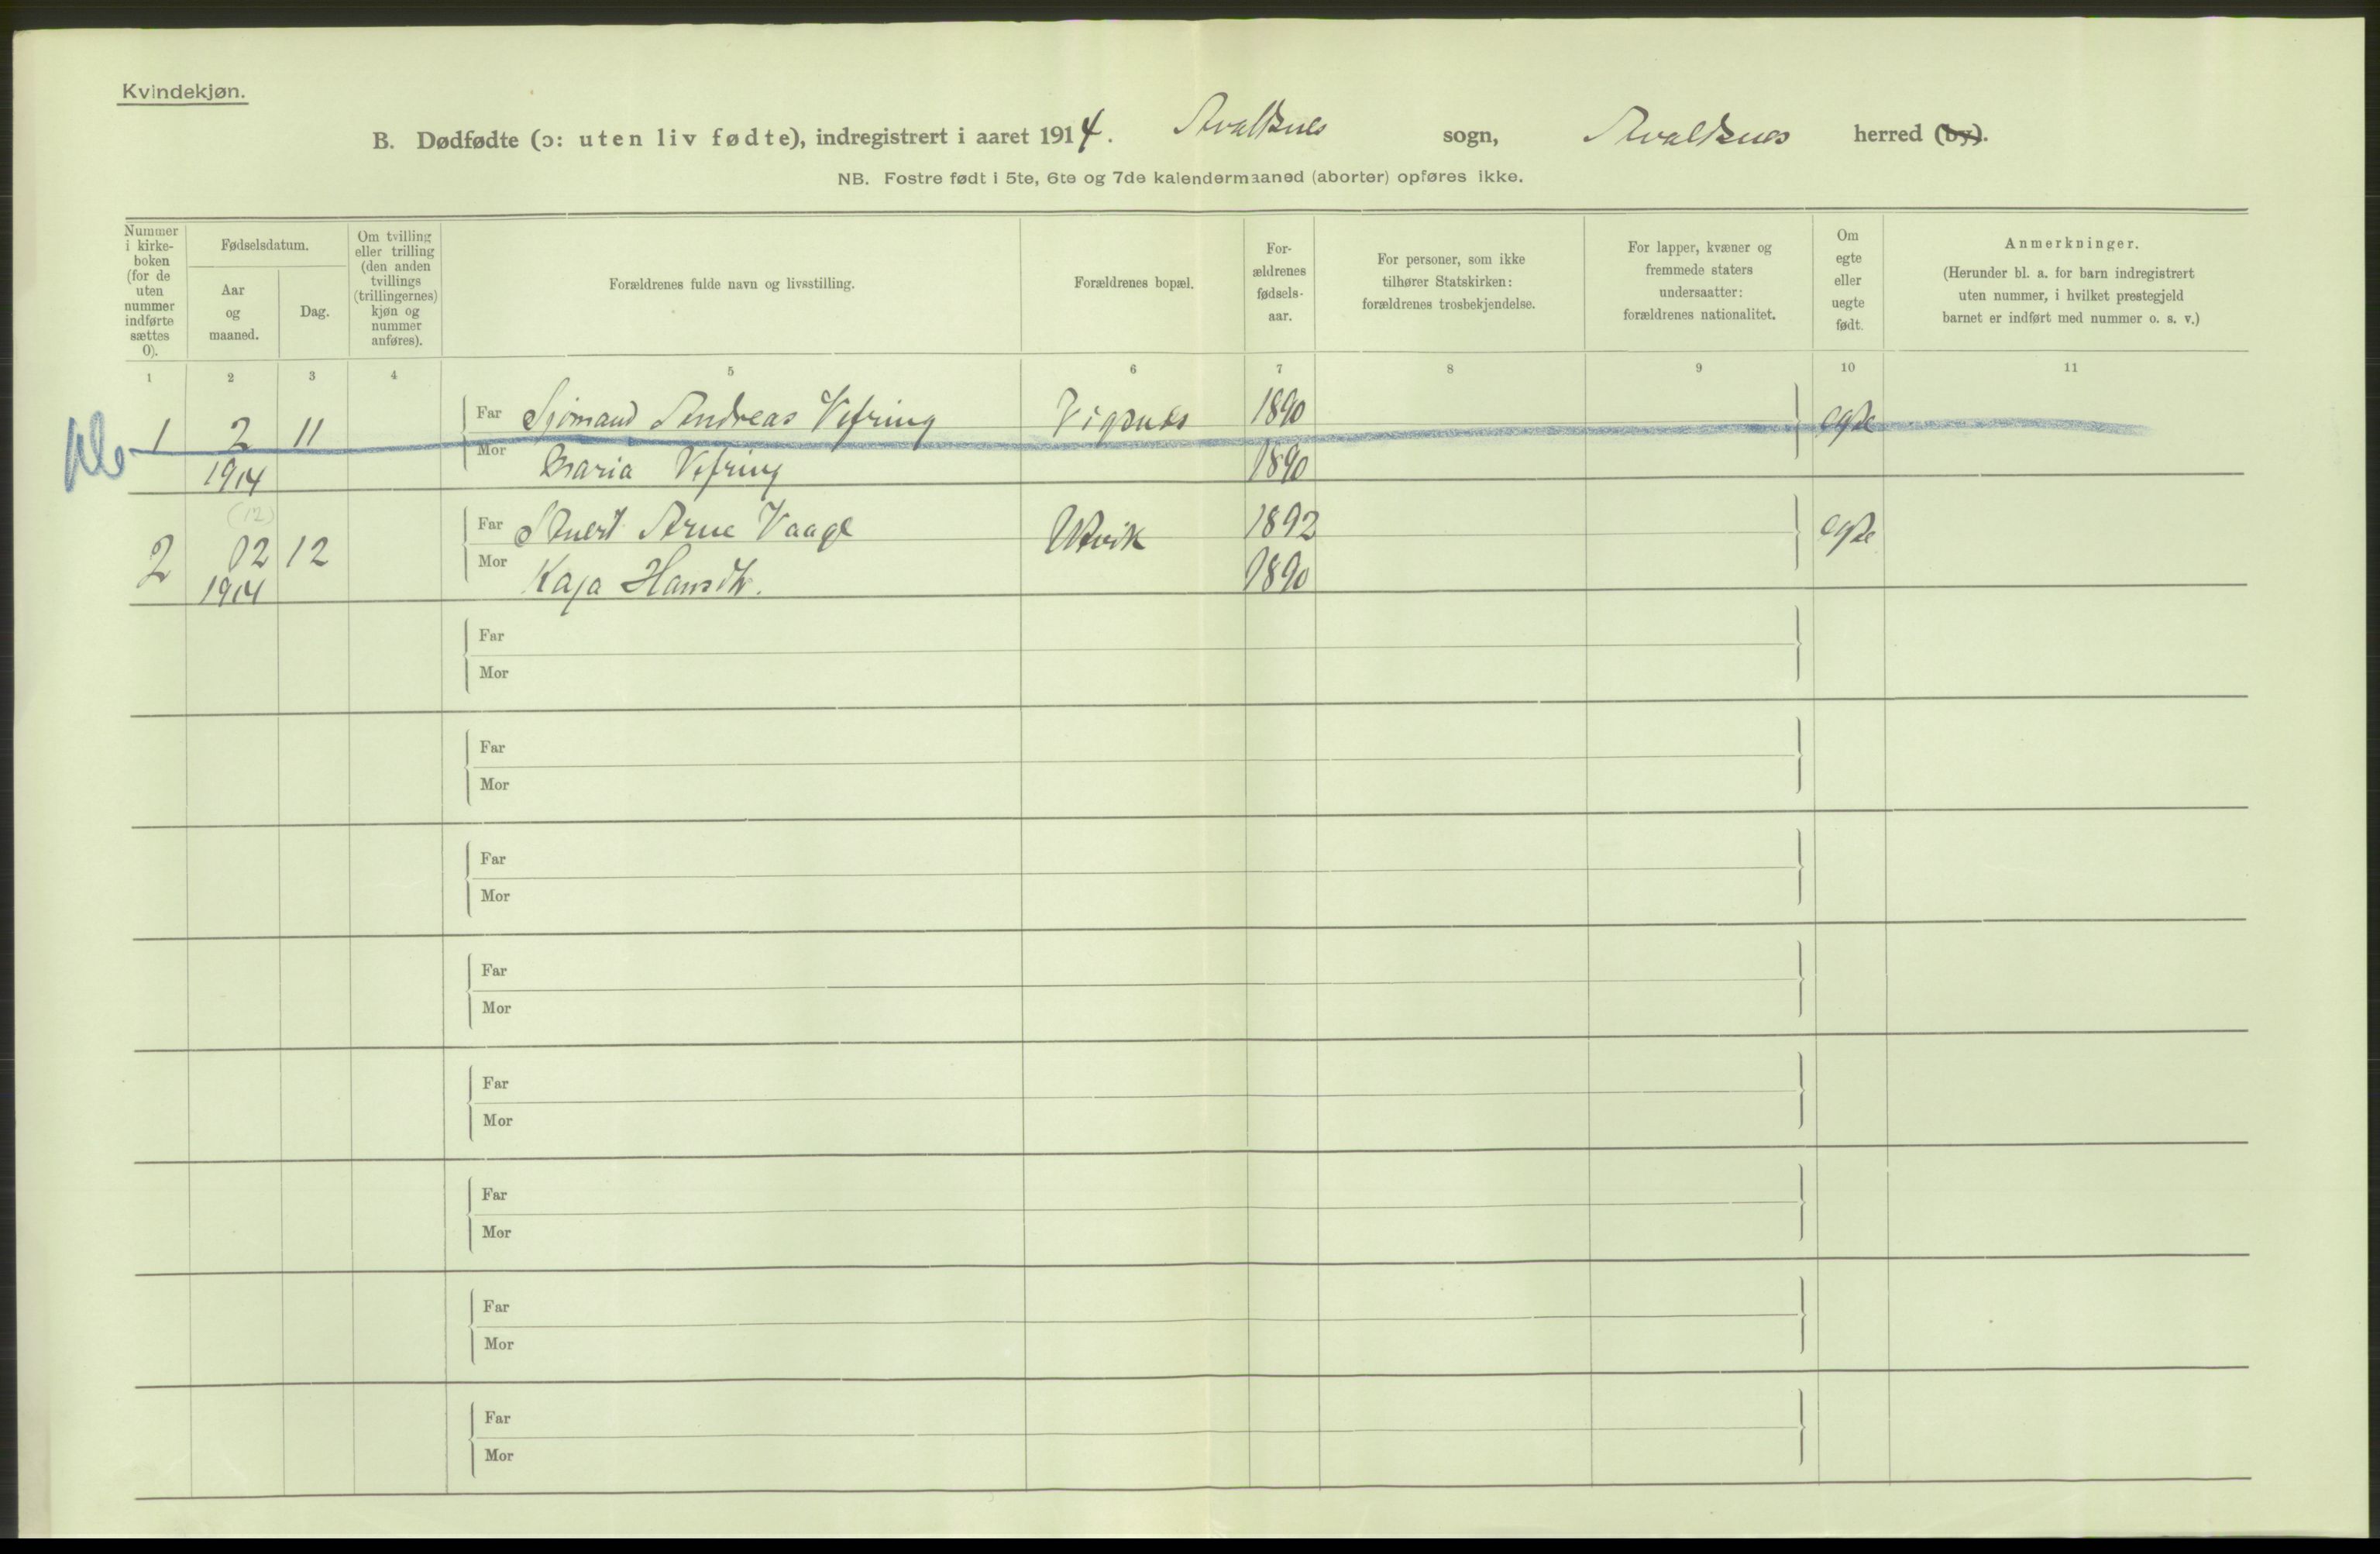 Kvindekjøn.
B. Dødfødte (ɔ: uten liv fødte), indregistrert i aaret 1914. Avaldsnes sogn, Avaldsnes herred (by).
NB. Fostre født i 5te, 6te og 7de kalendermaaned (aborter) opføres ikke.
Nummer i kirke- boken (for de uten nummer indførte sættes 0).
Fødselsdatum.
Aar og maaned.
Dag.
Om tvilling eller trilling (den anden tvillings (trillingernes) kjøn og nummer anføres).
Forældrenes fulde navn og livsstilling.
Forældrenes bopæl.
For- ældrenes fødsels- aar.
For personer, som ikke tilhører Statskirken: forældrenes trosbekjendelse.
For lapper, kvæner og fremmede staters undersaatter: forældrenes nationalitet.
Om egte eller uegte født.
Anmerkninger.
(Herunder bl. a. for barn indregistrert uten nummer, i hvilket prestegjeld barnet er indført med nummer o. s. v.)
1 2 3 4 5 6 7 8 9 10 11
1 2 11 Far Sjømand Andreas Vefring Vigsnes 1890 egte
1914 Mor Maria Vefring 1890
(12)
2 12 12 Far Arne Vaage Utvik 1892 egte
1914 Mor Kaja Hansdtr. 1890
Far
Mor
Far
Mor
Far
Mor
Far
Mor
Far
Mor
Far
Mor
Far
Mor
Far
Mor